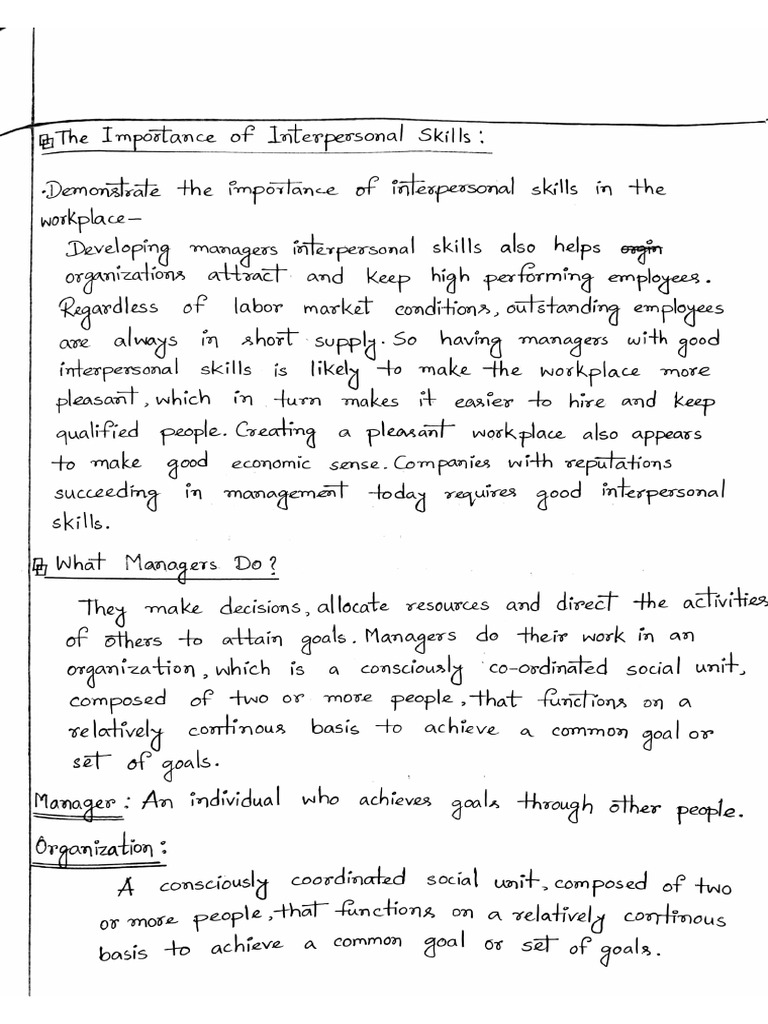 The Importance of Interpersonal Skills:
·Demonstrate the importance of interpersonal skills in the
workplace—
Developing managers interpersonal skills also helps orgin
organizations attract and keep high performing employees.
Regardless of labor market conditions, outstanding employees
are always in short supply. So having managers with good
interpersonal skills is likely to make the workplace more
pleasant, which in turn makes it easier to hire and keep
qualified people. Creating a pleasant workplace also appears
to make good economic sense. Companies with reputations
succeeding in management today requires good interpersonal
skills.
What Managers Do?
They make decisions, allocate resources and direct the activities
of others to attain goals. Managers do their work in an
organization, which is a consciously co-ordinated social unit,
composed of two or more people, that functions on a
relatively continous basis to achieve a common goal or
set of goals.
Manager: An individual who achieves goals through other people.
Organization:
A consciously coordinated social unit, composed of two
or more people, that functions on a relatively continous
basis to achieve a common goal or set of goals.